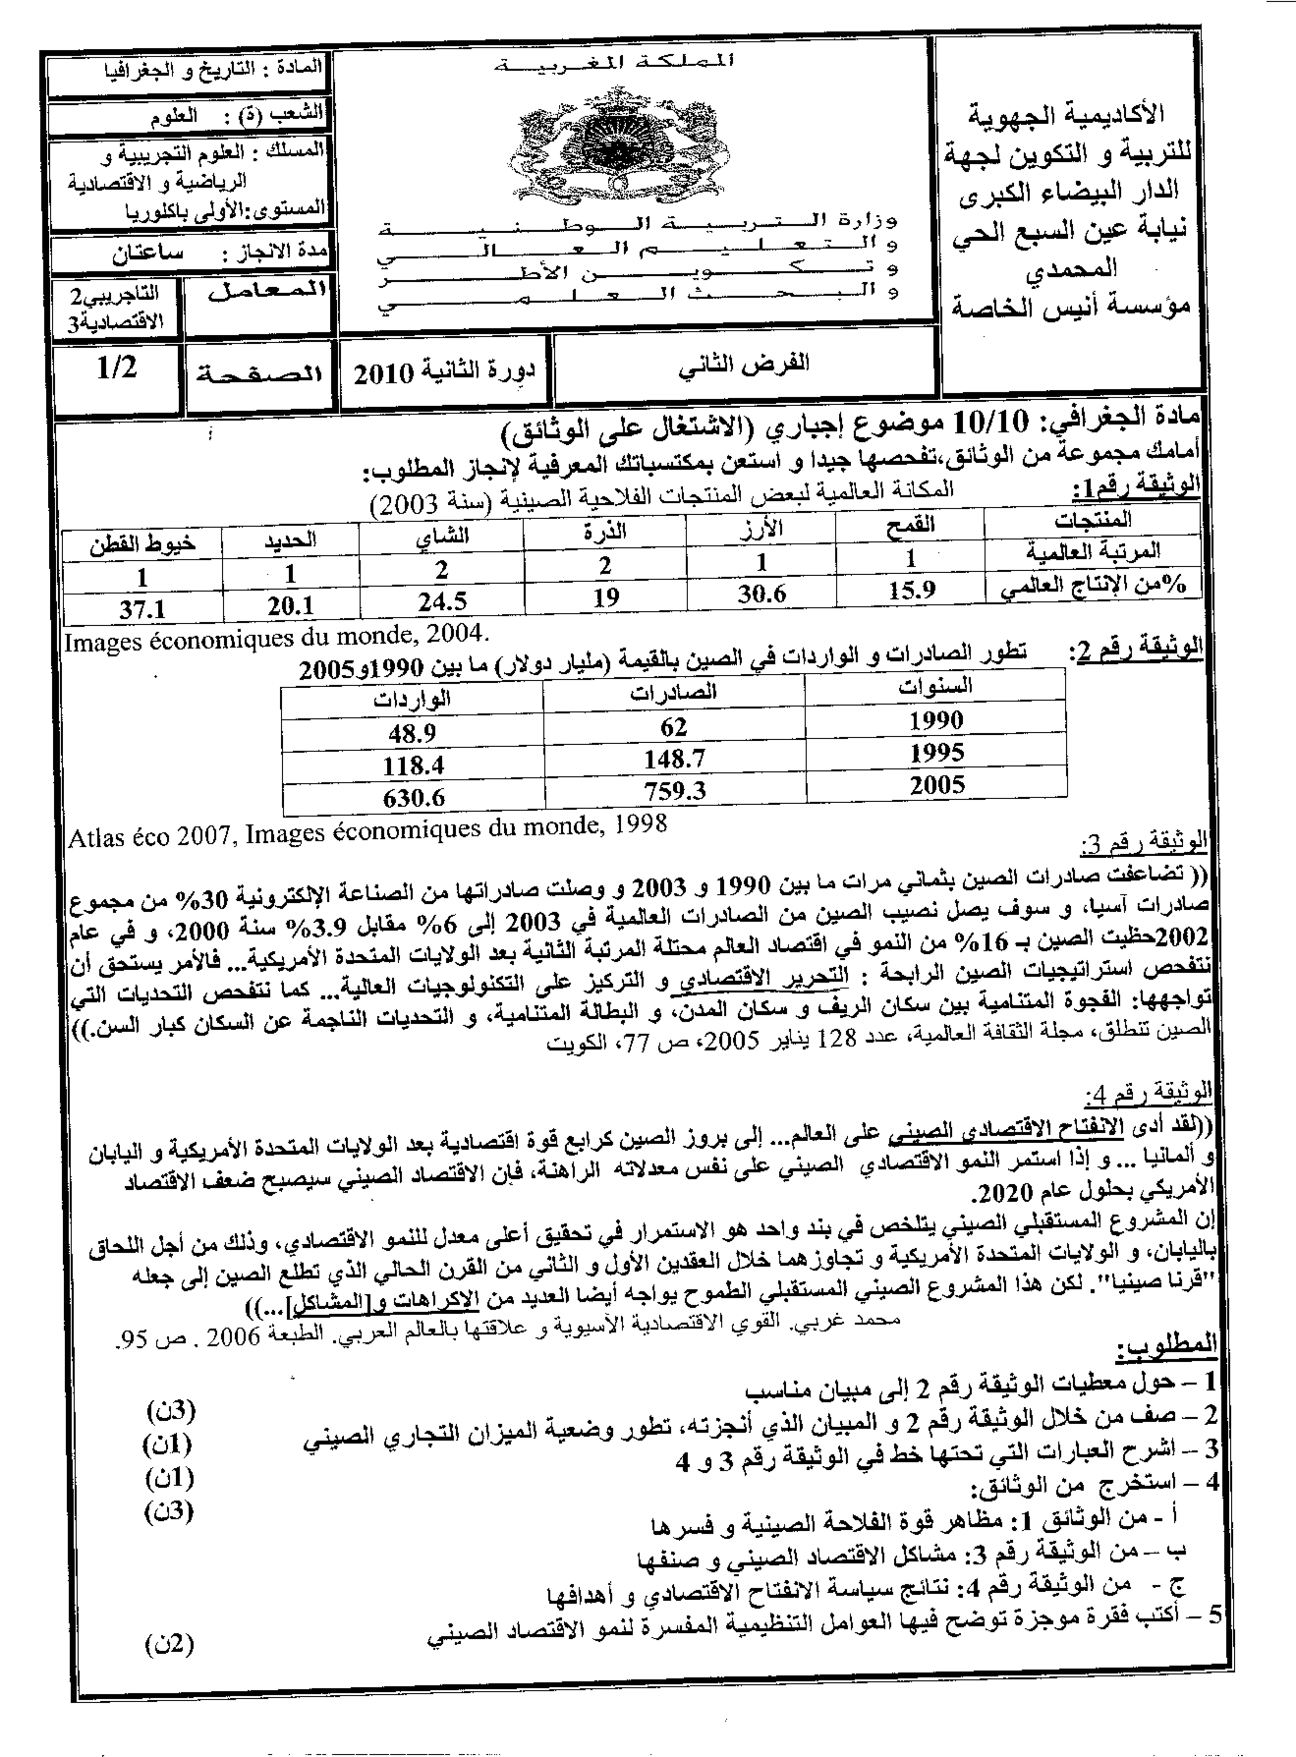 الأكاديمية الجهوية
للتربية و التكوين لجهة
الدار البيضاء الكبرى
نيابة عين السبع الحي
المحمدي
مؤسسة أنيس الخاصة
المملكة المغربية
وزارة التربية الوطنية
والتعليم العالي
وتكوين الأطر
والبحث العلمي
المادة : التاريخ و الجغرافيا
الشعب (ة) : العلوم
المسلك : العلوم التجريبية و
الرياضية و الاقتصادية
المستوى:الأولى باكلوريا
مدة الانجاز : ساعتان
المعامل
التاجريبي2
الاقتصادية3
الفرض الثاني
دورة الثانية 2010
الصفحة
1/2
مادة الجغرافي: 10/10 موضوع إجباري (الاشتغال على الوثائق)
أمامك مجموعة من الوثائق،تفحصها جيدا و استعن بمكتسباتك المعرفية لإنجاز المطلوب:
الوثيقة رقم1: المكانة العالمية لبعض المنتجات الفلاحية الصينية (سنة 2003)
المنتجات القمح الأرز الذرة الشاي الحديد خيوط القطن
المرتبة العالمية 1 1 2 2 1 1
%من الإنتاج العالمي 15.9 30.6 19 24.5 20.1 37.1
Images économiques du monde, 2004.
الوثيقة رقم 2: تطور الصادرات و الواردات في الصين بالقيمة (مليار دولار) ما بين 1990و2005
السنوات الصادرات الواردات
1990 62 48.9
1995 148.7 118.4
2005 759.3 630.6
Atlas éco 2007, Images économiques du monde, 1998
الوثيقة رقم 3:
(( تضاعفت صادرات الصين بثماني مرات ما بين 1990 و 2003 و وصلت صادراتها من الصناعة الإلكترونية 30% من مجموع
صادرات آسيا، و سوف يصل نصيب الصين من الصادرات العالمية في 2003 إلى 6% مقابل 3.9% سنة 2000، و في عام
2002حظيت الصين بـ 16% من النمو في اقتصاد العالم محتلة المرتبة الثانية بعد الولايات المتحدة الأمريكية... فالأمر يستحق أن
نتفحص استراتيجيات الصين الرابحة : التحرير الاقتصادي و التركيز على التكنولوجيات العالية... كما نتفحص التحديات التي
تواجهها: الفجوة المتنامية بين سكان الريف و سكان المدن، و البطالة المتنامية، و التحديات الناجمة عن السكان كبار السن.))
الصين تنطلق، مجلة الثقافة العالمية، عدد 128 يناير 2005، ص 77، الكويت
الوثيقة رقم 4:
((لقد أدى الانفتاح الاقتصادي الصيني على العالم... إلى بروز الصين كرابع قوة اقتصادية بعد الولايات المتحدة الأمريكية و اليابان
و ألمانيا ... و إذا استمر النمو الاقتصادي الصيني على نفس معدلاته الراهنة، فإن الاقتصاد الصيني سيصبح ضعف الاقتصاد
الأمريكي بحلول عام 2020.
إن المشروع المستقبلي الصيني يتلخص في بند واحد هو الاستمرار في تحقيق أعلى معدل للنمو الاقتصادي، وذلك من أجل اللحاق
باليابان، و الولايات المتحدة الأمريكية و تجاوزهما خلال العقدين الأول و الثاني من القرن الحالي الذي تطلع الصين إلى جعله
"قرنا صينيا". لكن هذا المشروع الصيني المستقبلي الطموح يواجه أيضا العديد من الإكراهات و[المشاكل]...))
محمد غربي. القوي الاقتصادية الآسيوية و علاقتها بالعالم العربي. الطبعة 2006 . ص 95.
المطلوب:
1 – حول معطيات الوثيقة رقم 2 إلى مبيان مناسب (3ن)
2 – صف من خلال الوثيقة رقم 2 و المبيان الذي أنجزته، تطور وضعية الميزان التجاري الصيني (1ن)
3 – اشرح العبارات التي تحتها خط في الوثيقة رقم 3 و 4 (1ن)
4 – استخرج من الوثائق: (3ن)
أ - من الوثائق 1: مظاهر قوة الفلاحة الصينية و فسرها
ب – من الوثيقة رقم 3: مشاكل الاقتصاد الصيني و صنفها
ج - من الوثيقة رقم 4: نتائج سياسة الانفتاح الاقتصادي و أهدافها
5 – أكتب فقرة موجزة توضح فيها العوامل التنظيمية المفسرة لنمو الاقتصاد الصيني (2ن)